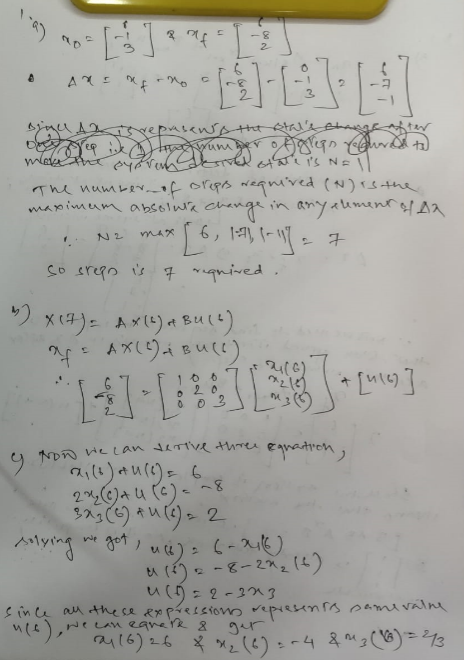 a) x0 = [0 -1 3] & xf = [6 -8 2]
Δx = xf - x0 = [6 -8 2] - [0 -1 3] = [6 -7 -1]
since Δx represents the state change after
number of steps required to
move the system desired state is N=1
The number of steps required (N) is the
maximum absolute change in any element of Δx
∴ N = max [6, |-7|, |-1|] = 7
so steps is 7 required.
b) X(7) = AX(6) + BU(6)
xf = AX(6) + BU(6)
∴ [6 -8 2] = [1 0 0 0 2 0 0 0 3] [x1(6) x2(6) x3(6)] + [u(6)]
c) Now we can derive three equation,
x1(6) + u(6) = 6
2x2(6) + u(6) = -8
3x3(6) + u(6) = 2
solving we got, u(6) = 6 - x1(6)
u(6) = -8 - 2x2(6)
u(6) = 2 - 3x3
since all these expressions represents same value
u(6), we can equate & get
x1(6) = 6 & x2(6) = -4 & x3(6) = 2/3